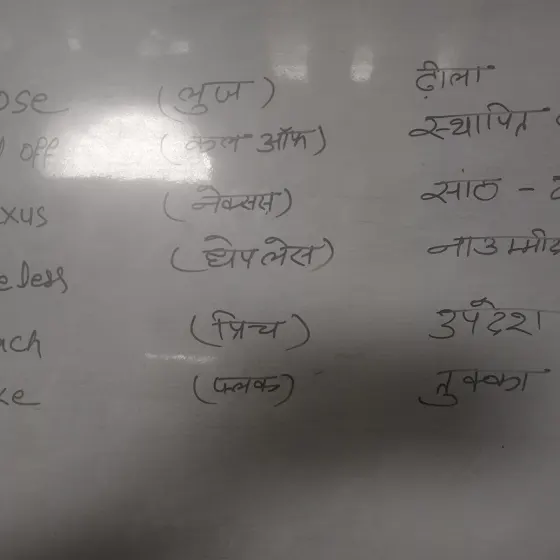 ose (लुज) ढ़ीला
off (कल ऑफ) स्थापित
xus (नेक्सस) सांठ -
eless (धेपलेस) नाउम्मीद
ach (प्रिच) उपदेश
ke (फ्लक) तुक्का